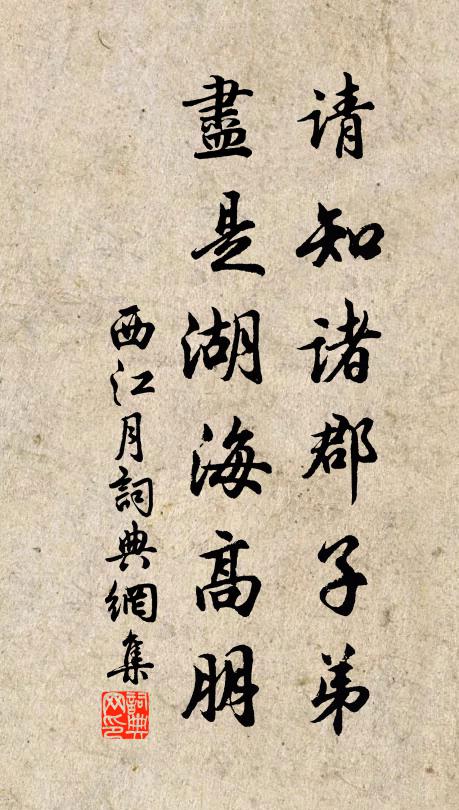 请知诸郡子弟
盡是湖海高朋
西江月詞典網集
詞典网印